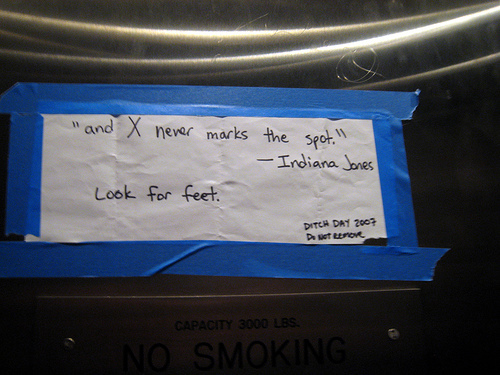 "and X never marks the spot."
— Indiana Jones
Look for feet.
DITCH DAY 2007
DO NOT REMOVE
CAPACITY 3000 LBS.
NO SMOKING